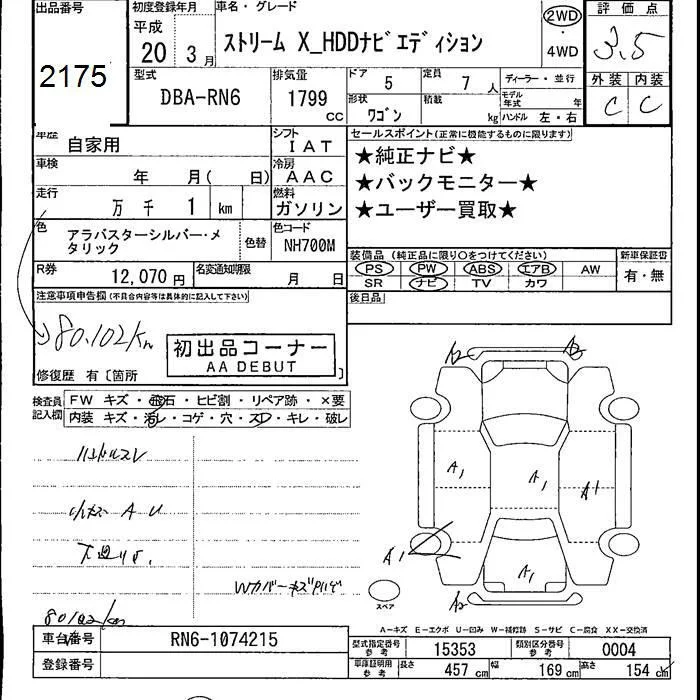 出品番号 初度登録年月 車名・グレード 2WD ・ 4WD 評価点
2175 平成 20年 3月 ストリーム X_HDDナビエディション 3.5
型式 DBA-RN6 排気量 1799 cc ドア 5 定員 7人 ディーラー・並行 外装 内装
形状 ワゴン 積載 kg モデル年式 年 ハンドル 左・右 C C
車歴 自家用 シフト IAT セールスポイント(正常に機能するものに限ります)
車検 年 月( 日) 冷房 AAC ★純正ナビ★
走行 万 千 1 km 燃料 ガソリン ★バックモニター★
★ユーザー買取★
色 アラバスターシルバー・メタリック 色替 色コード NH700M
装備品(純正品に限り○をつけてください) 新車保証書
PS PW ABS エアB AW 有・無
SR ナビ TV カワ
R券 12,070円 名変通知期限 月 日
後日品
注意事項申告欄(不具合内容等は具体的に記入して下さい)
80,102km
初出品コーナー
AA DEBUT
修復歴 有〔箇所 〕
検査員記入欄 FW キズ・飛石・ヒビ割・リペア跡・×要
内装 キズ・汚レ・コゲ・穴・スレ・キレ・破レ
ハンドルスレ
A U
Wカバーキズ
80102km
A2 A2
A1 A1 A1
A1 A1
A2
スペア
A-キズ E-エクボ U-凹み W-補修跡 S-サビ C-腐食 XX-交換済
車台番号 RN6-1074215 型式指定番号 参考 15353 類別区分番号 参考 0004
登録番号 車庫証明用 参考 長さ 457cm 幅 169cm 高さ 154cm